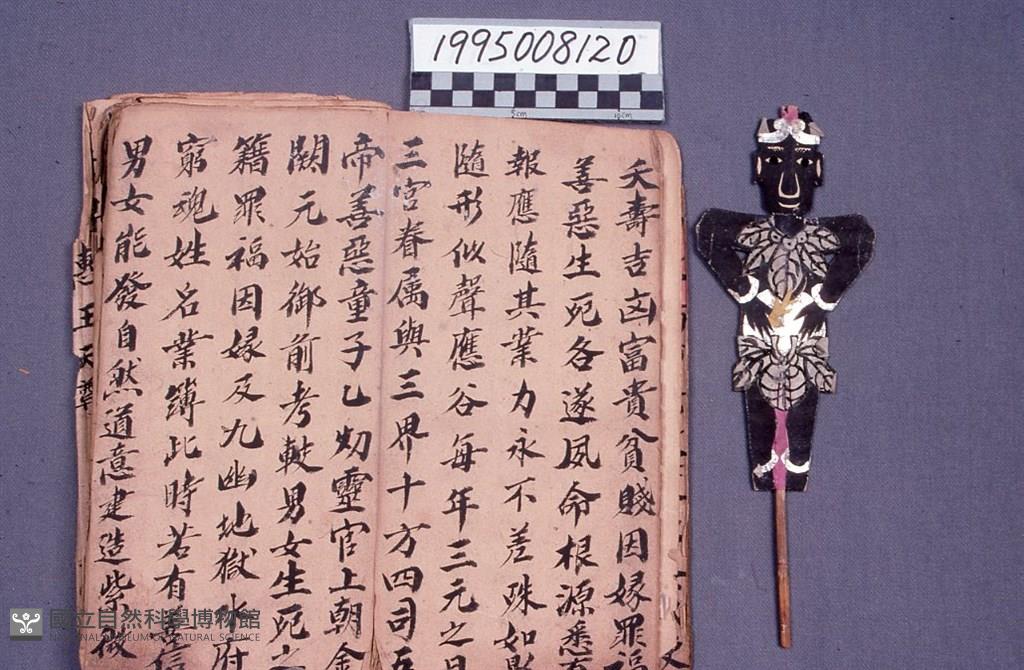 1995008120
5cm
10cm
夭壽吉凶富貴貧賤因緣罪福
善惡生死各遂夙命根源悉有
報應隨其業力永不差殊如影
隨形似聲應谷每年三元之日
三官眷属與三界十方四司五
帝善惡童子乙灱靈官上朝金
闕元始御前考較男女生死之
籍罪福因緣及九幽地獄水府
窮魂姓名業簿此時若有信
男女能發自然道意建造紫微
王天尊
國立自然科學博物館
NATIONAL MUSEUM OF NATURAL SCIENCE